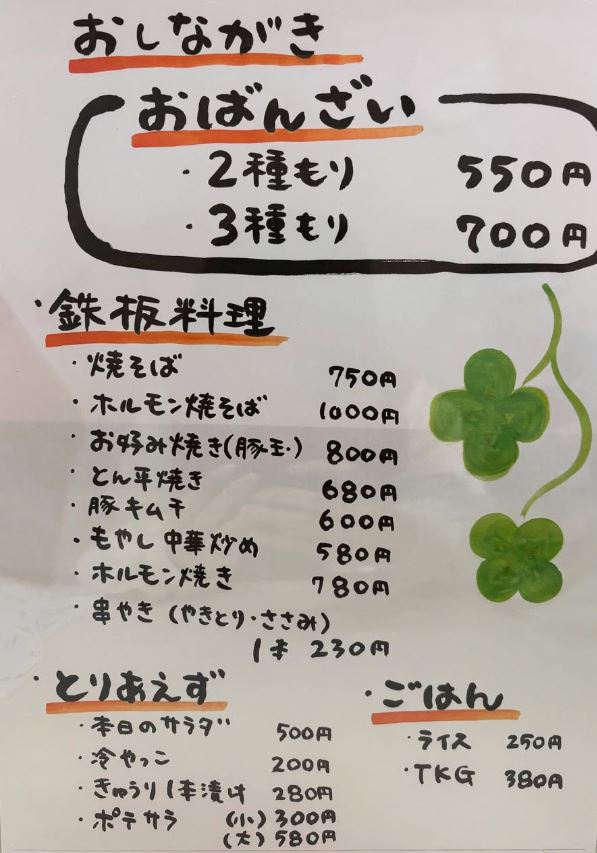 おしながき
おばんざい
・2種もり 550円
・3種もり 700円
・鉄板料理
・焼そば 750円
・ホルモン焼そば 1000円
・お好み焼き(豚玉) 800円
・とん平焼き 680円
・豚キムチ 600円
・もやし中華炒め 580円
・ホルモン焼き 780円
・串やき(やきとり・ささみ)
1本 230円
・とりあえず
・本日のサラダ 500円
・冷やっこ 200円
・きゅうり1本漬け 280円
・ポテサラ (小) 300円
(大) 580円
・ごはん
・ライス 250円
・TKG 380円